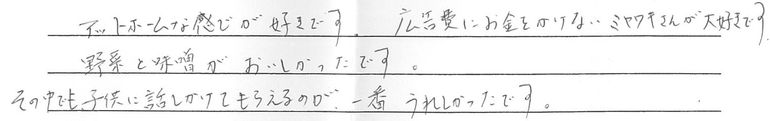 アットホームな感じが好きです。 広告費にお金をかけないミヤワキさんが大好きです。
野菜と味噌がおいしかったです。
その中でも子供に話しかけてもらえるのが、一番うれしかったです。